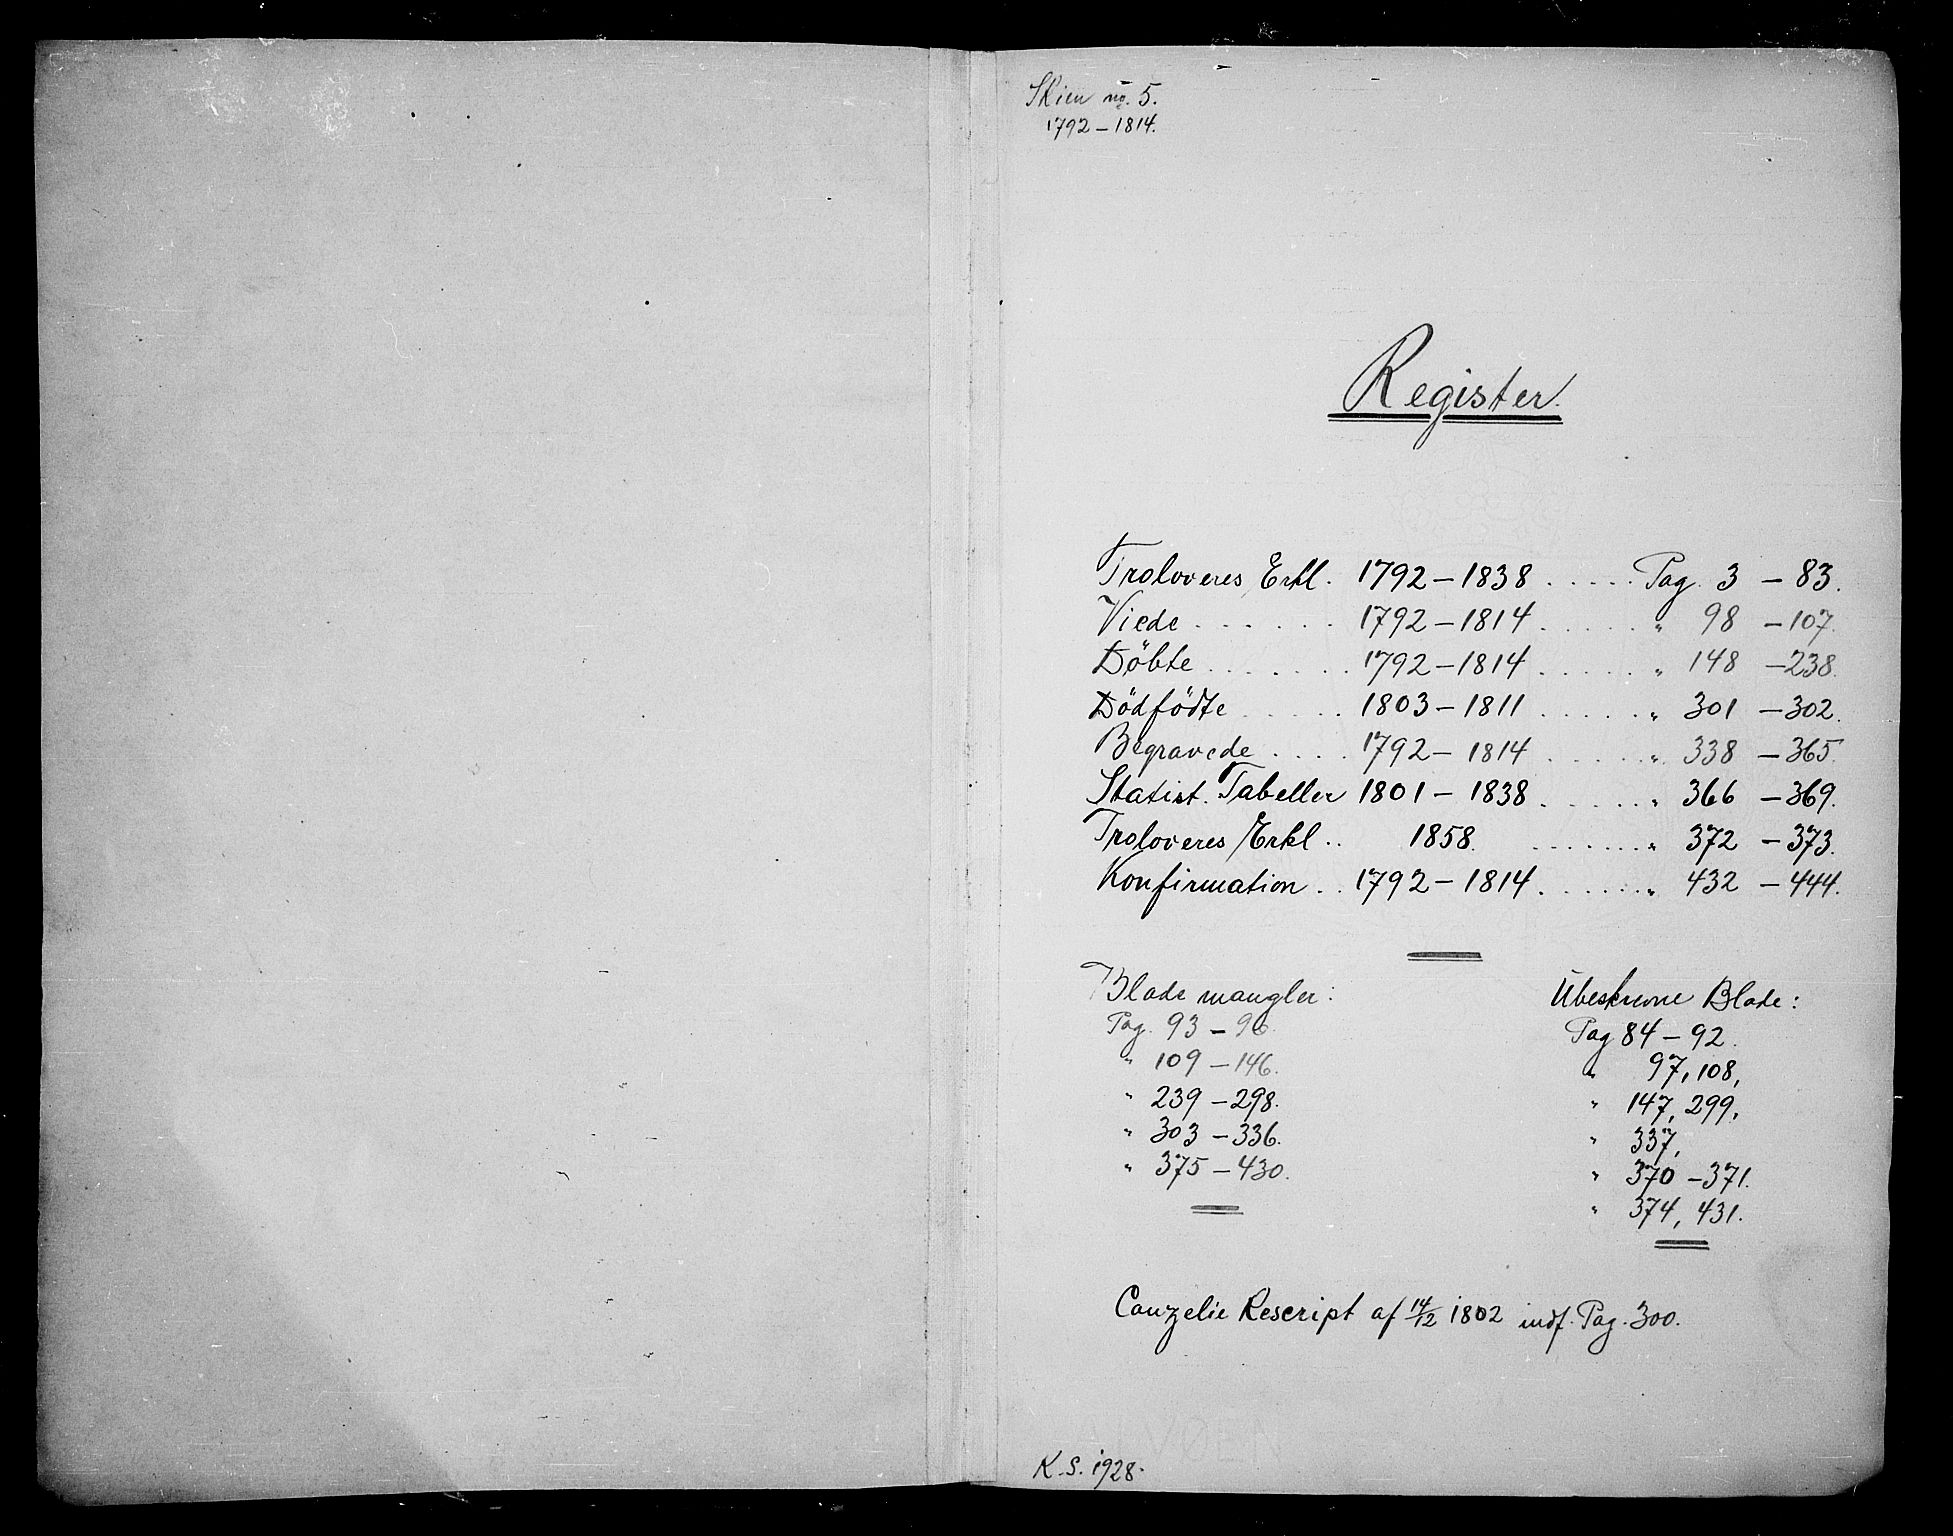 Skien no. 5.
1792 – 1814.
Register.
Troloveres Erkl. 1792 – 1838 ..... Pag. 3 – 83.
Viede ...... 1792 – 1814 ..... " 98 – 107.
Döbte ...... 1792 – 1814 ..... " 148 – 238.
Dödfödte ..... 1803 – 1811 ..... " 301 – 302.
Begravede .... 1792 – 1814 ..... " 338 – 365.
Statist. Tabeller 1801 – 1838 ..... " 366 – 369.
Troloveres Erkl .. 1858. ...... " 372 – 373.
Konfirmation .. 1792 – 1814 ..... " 432 – 444.
Blade mangler:
Pag. 93 – 96.
" 109 – 146.
" 239 – 298.
" 303 – 336.
" 375 – 430.
Ubeskrevne Blade:
Pag 84 – 92.
" 97, 108,
" 147, 299,
" 337,
" 370 – 371.
" 374, 431.
Canzelie Rescript af 14/12 1802 indf. Pag. 300.
ALVØEN
K.S. 1928.